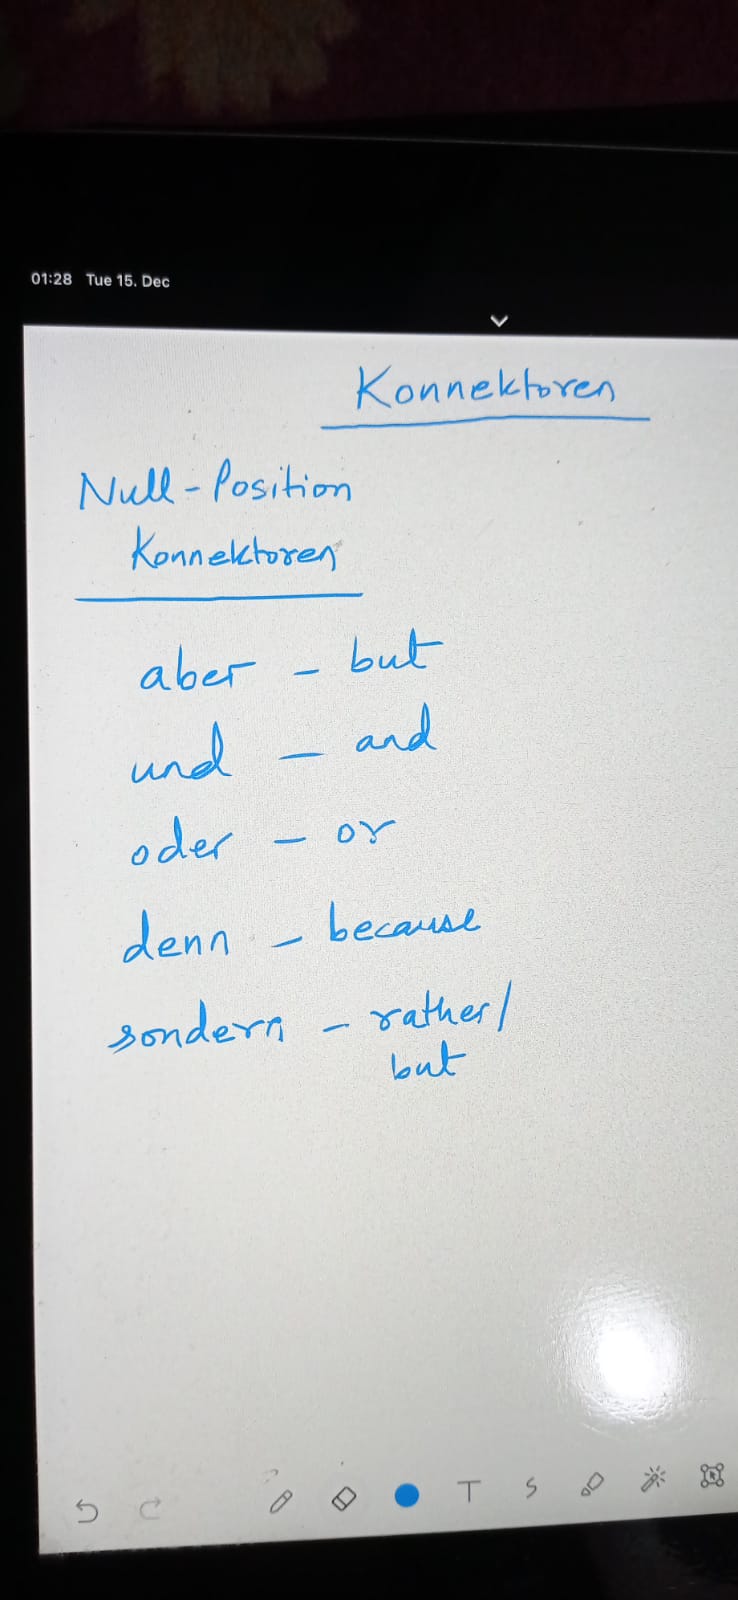 01:28 Tue 15. Dec
Konnektoren
Null-Position
Konnektoren
aber - but
und - and
oder - or
denn - because
sondern - rather/
but
T